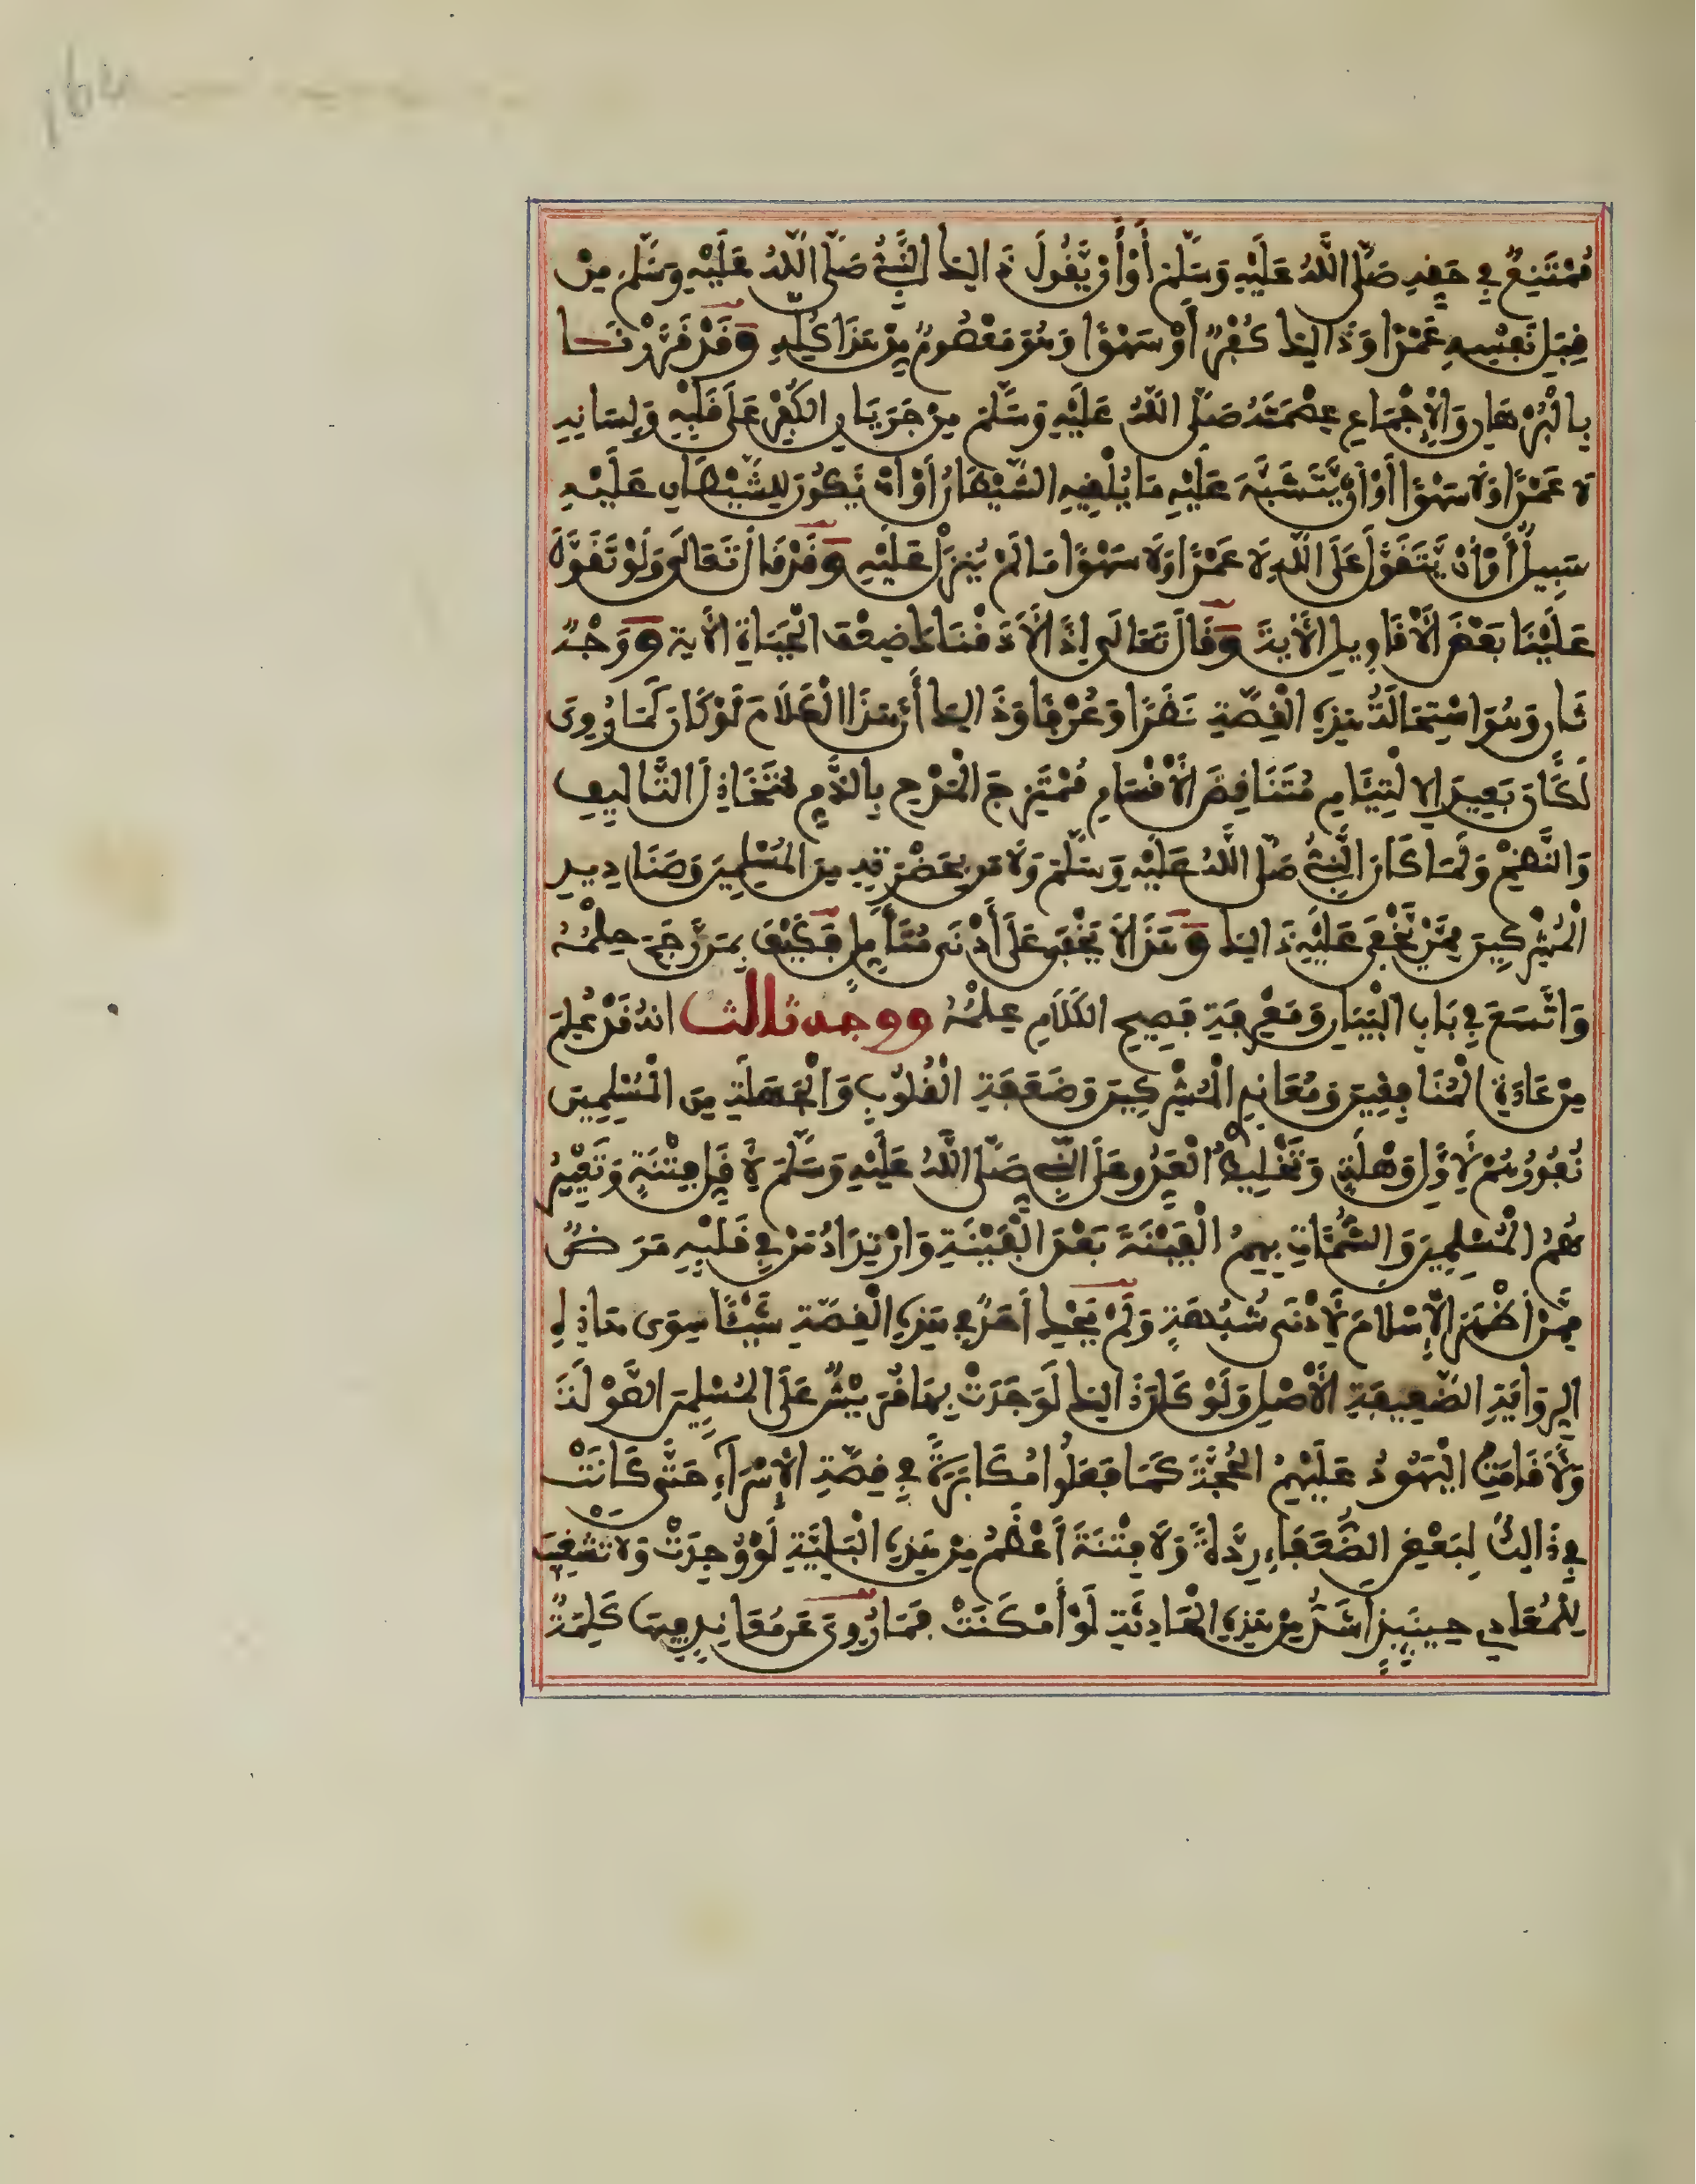 مُمْتَنِعٌ فِي حَقِّهِ صَلَّى اللَّهُ عَلَيْهِ وَسَلَّمَ أَوْ أَنْ يَّقُولَ ذَالِكَ النَّبِيُّ صَلَّى اللَّهُ عَلَيْهِ وَسَلَّمَ مِنْ
قِبَلِ نَفْسِهِ عَمْدًا وَذَالِكَ كُفْرٌ أَوْ سَهْوًا وَهُوَ مَعْصُومٌ مِنْ هَذَا كُلِّهِ وَقَدْ قَرَّرْنَا
بِالْبُرْهَانِ وَالْإِجْمَاعِ عِصْمَتَهُ صَلَّى اللَّهُ عَلَيْهِ وَسَلَّمَ مِنْ جَرَيَانِ الْكُفْرِ عَلَى قَلْبِهِ وَلِسَانِهِ
لَا عَمْدًا وَلَا سَهْوًا أَوْ أَنْ يَّتَشَبَّهَ عَلَيْهِ مَا يُلْقِيهِ الشَّيْطَانُ أَوْ أَنْ يَّكُونَ لِلشَّيْطَانِ عَلَيْهِ
سَبِيلٌ أَوْ أَنْ يَّتَقَوَّلَ عَلَى اللَّهِ لَا عَمْدًا وَلَا سَهْوًا مَا لَمْ يُنْزَلْ عَلَيْهِ وَقَدْ قَالَ تَعَالَى وَلَوْ تَقَوَّلَ
عَلَيْنَا بَعْضَ الْأَقَاوِيلِ الْأَيَةَ وَقَالَ تَعَالَى إِذًا لَّأَذَقْنَاكَ ضِعْفَ الْحَيَاةِ الْأَيَةَ وَوَجْهٌ
ثَانٍ وَهُوَ اسْتِحَالَةُ هَذِهِ الْقِصَّةِ نَظَرًا وَعُرْفًا وَذَالِكَ أَنَّ هَذَا الْكَلَامَ لَوْ كَانَ كَمَا رُوِيَ
لَكَانَ بَعِيدَ الِالْتِئَامِ مُتَنَاقِضَ الْأَقْسَامِ مُمْتَزِجَ الْمَدْحِ بِالذَّمِّ مُتَخَاذِلَ التَّالِيفِ
وَالنَّظْمِ وَلَمَا كَانَ النَّبِيُّ صَلَّى اللَّهُ عَلَيْهِ وَسَلَّمَ وَلَا مَنْ بِحَضْرَتِهِ مِنَ الْمُسْلِمِينَ وَصَنَادِيدِ
الْمُشْرِكِينَ مِمَّنْ يَّخْفَى عَلَيْهِ ذَالِكَ وَهَذَا لَا يَخْفَى عَلَى أَدْنَى مُتَأَمِّلٍ فَكَيْفَ بِمَنْ رَّجَحَ حِلْمُهُ
وَاتَّسَعَ فِي بَابِ الْبَيَانِ وَمَعْرِفَةِ فَصِيحِ الْكَلَامِ عِلْمُهُ وَوجه ثالث انهُ قَدْ عُلِمَ
مِنْ عَادَةِ الْمُنَافِقِينَ وَمُعَانِدِ الْمُشْرِكِينَ وَضَعَفَةِ الْقُلُوبِ وَالْجَهَلَةِ مِنَ الْمُسْلِمِينَ
نُفُورُهُمْ لِأَوَّلِ وَهْلَةٍ وَتَخْلِيطُ الْعَدُوِّ عَلَى النَّبِيِّ صَلَّى اللَّهُ عَلَيْهِ وَسَلَّمَ لِأَقَلِّ فِتْنَةٍ وَتَعْيِيرُ
هُمُ الْمُسْلِمِينَ وَالشَّمَاتُ بِهِمُ الْفَيْنَةَ بَعْدَ الْفَيْنَةِ وَارْتِدَادُ مَنْ فِي قَلْبِهِ مَرَضٌ
مِمَّنْ أَظْهَرَ الْإِسْلَامَ لِأَدْنَى شُبْهَةٍ وَلَمْ يَحْكِ أَحَدٌ فِي هَذِهِ الْقِصَّةِ شَيْئًا سِوَى هَاذِهِ
الرِّوَايَةِ الضَّعِيفَةِ الْأَصْلِ وَلَوْ كَانَ ذَالِكَ لَوَجَدَتْ بِهَا قُرَيْشٌ عَلَى الْمُسْلِمِينَ الصَّوْلَةَ
وَلَأَقَامَتِ الْيَهُودُ عَلَيْهِمُ الْحُجَّةَ كَمَا فَعَلُوا مُكَابَرَةً فِي قِصَّةِ الْإِسْرَآءِ حَتَّى كَانَتْ
فِي ذَالِكَ لِبَعْضِ الضُّعَفَاءِ رِدَّةٌ وَلَا فِتْنَةَ أَعْظَمُ مِنْ هَذِهِ الْبَلِيَّةِ لَوْ وُجِدَتْ وَلَا تَشْغِيبَ
لِلْمُعَادِي حِينَئِذٍ أَشَدُّ مِنْ هَذِهِ الْحَادِثَةِ لَوْ أَمْكَنَتْ فَمَا رُوِيَ عَنْ مُعَانِدٍ فِيهَا كَلِمَةٌ